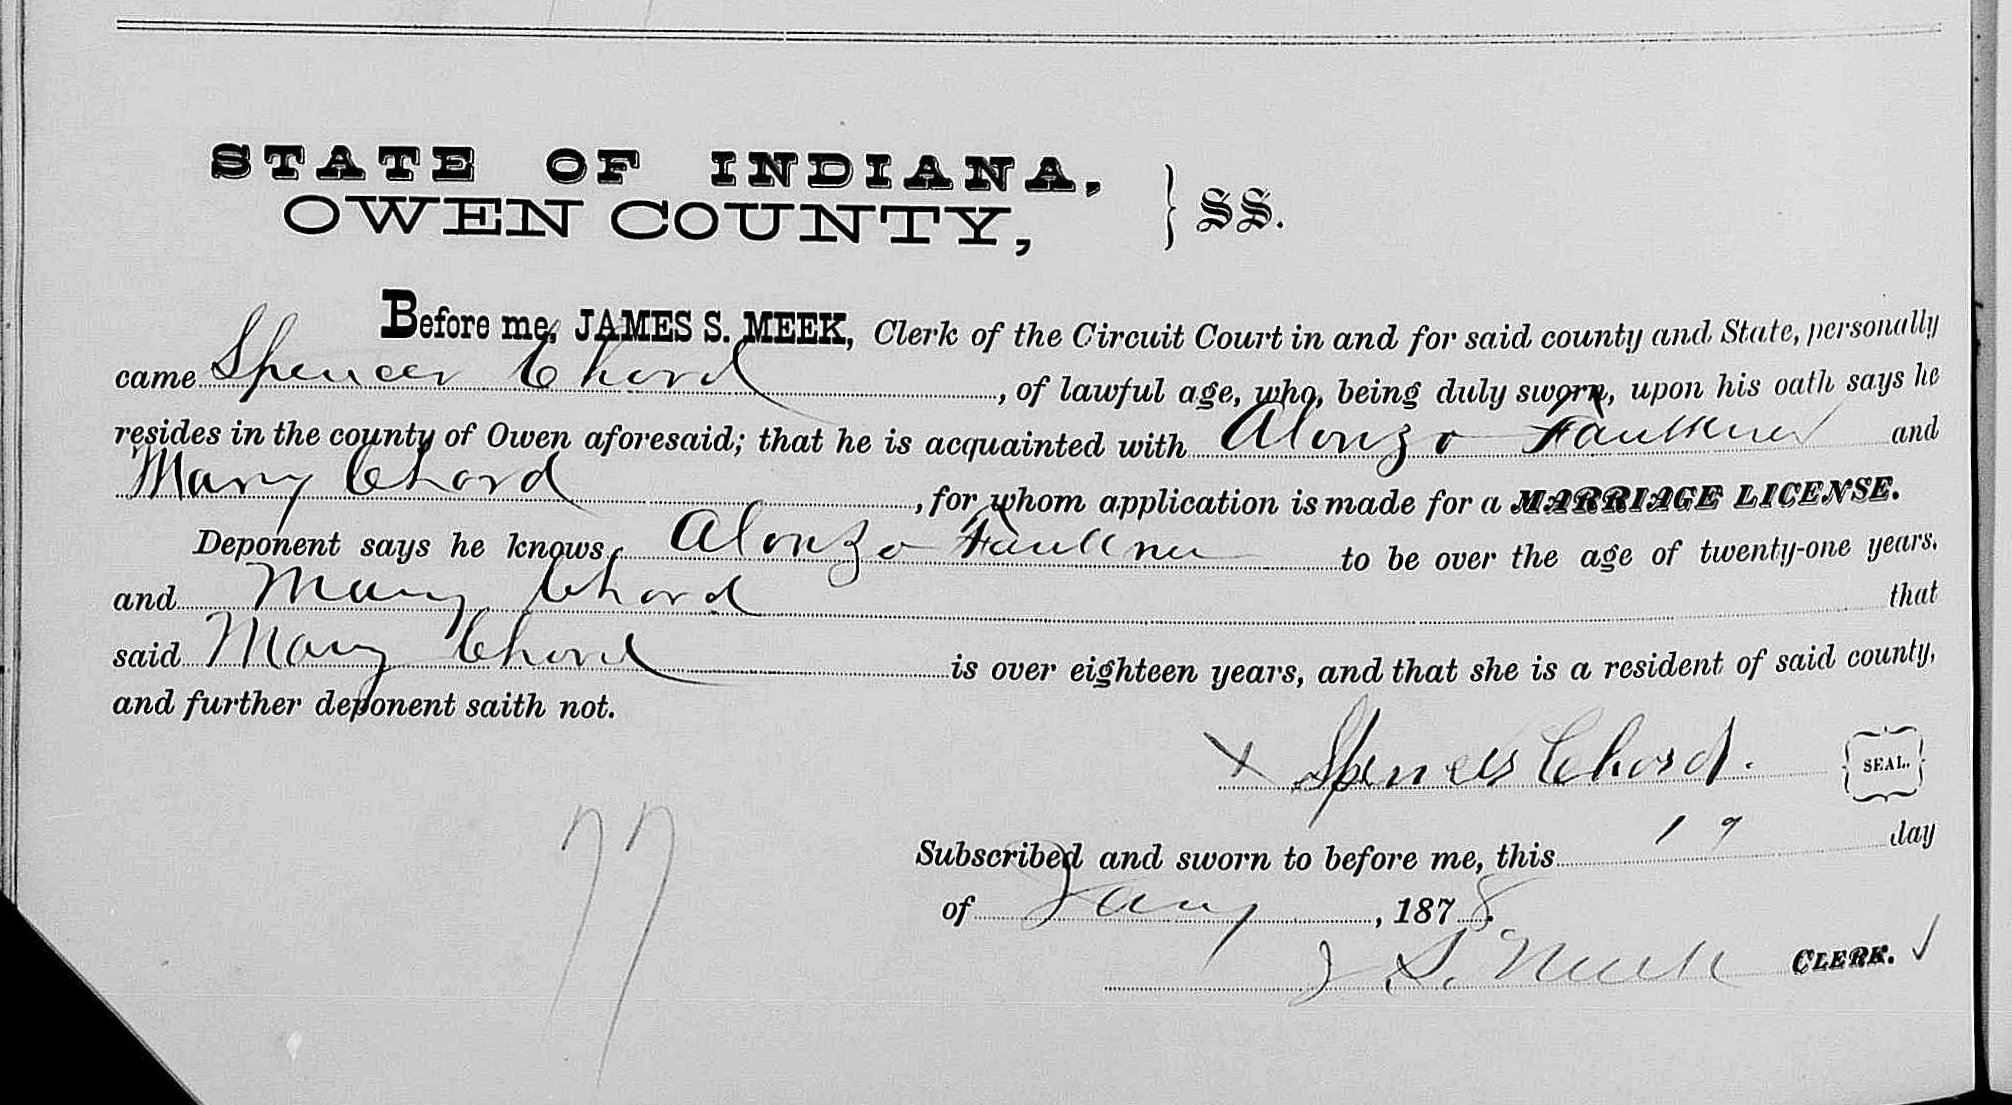 STATE OF INDIANA,
OWEN COUNTY, } SS.
Before me, JAMES S. MEEK, Clerk of the Circuit Court in and for said county and State, personally
came Spencer Chord, of lawful age, who, being duly sworn, upon his oath says he
resides in the county of Owen aforesaid; that he is acquainted with Alonzo Faulkner and
Mary Chord, for whom application is made for a MARRIAGE LICENSE.
Deponent says he knows Alonzo Faulkner to be over the age of twenty-one years.
and Mary Chord that
said Mary Chord is over eighteen years, and that she is a resident of said county,
and further deponent saith not.
x Spencer Chord. SEAL.
Subscribed and sworn to before me, this 19 day
of Jany, 1878.
J S. Meek CLERK. ✓
77